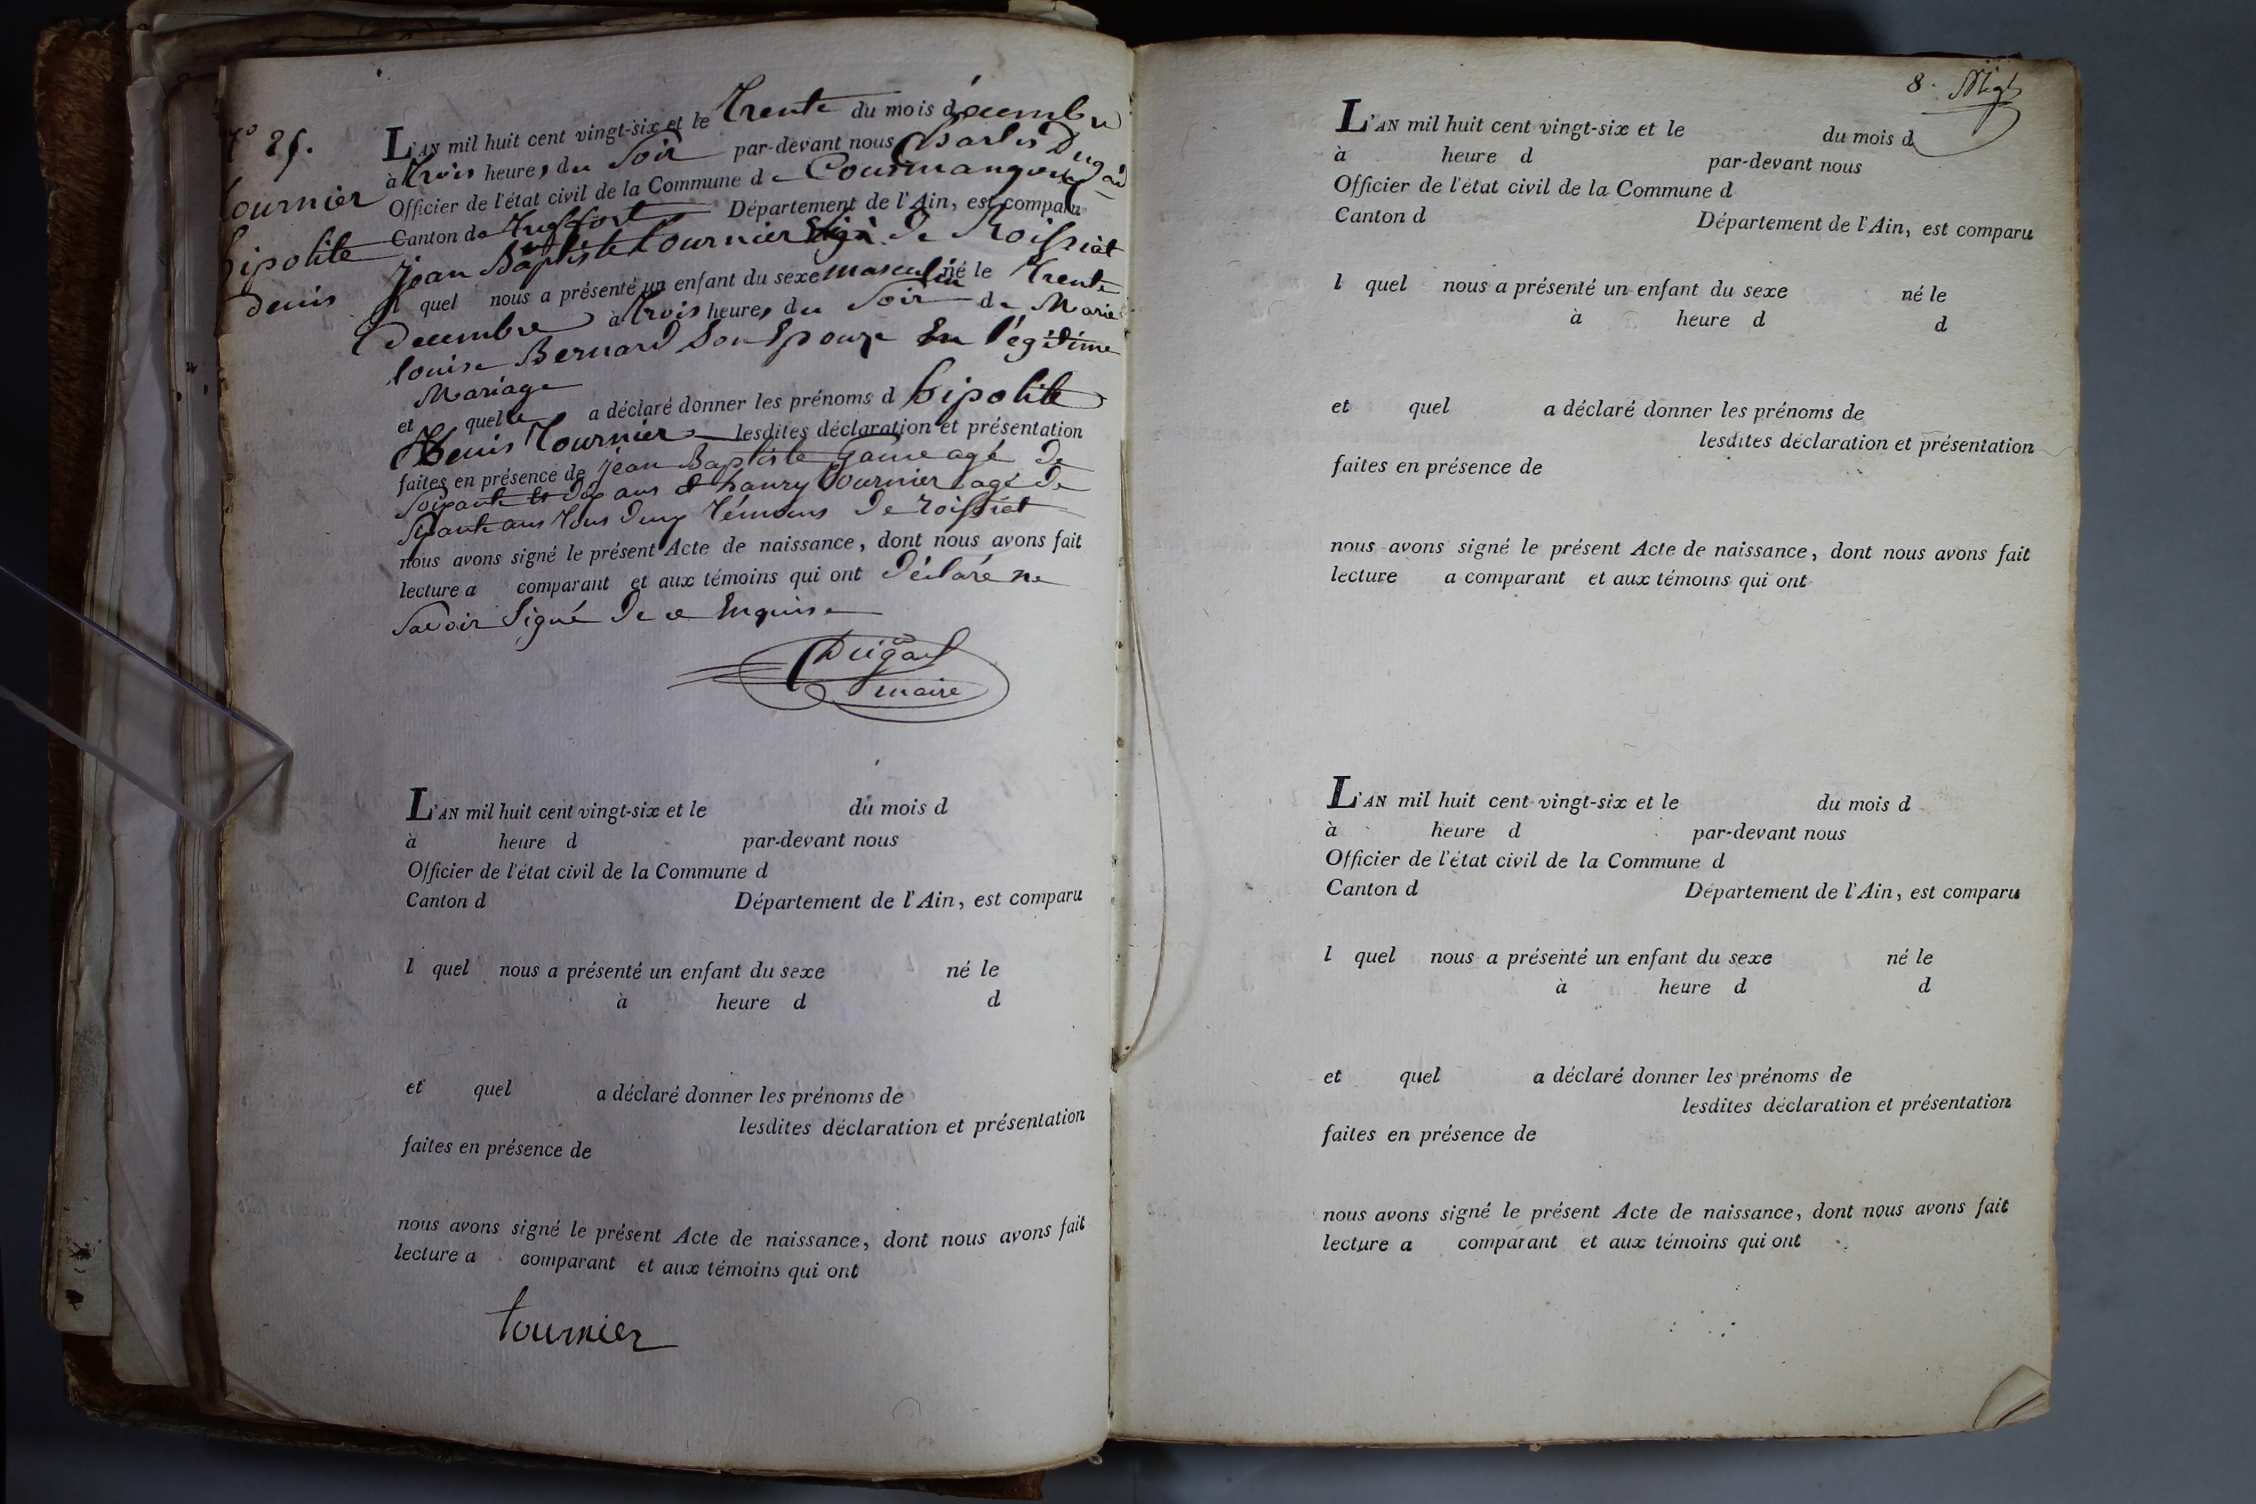 N° 25.
tournier
hipolite
denis
L'AN mil huit cent vingt-six et le Trente du mois décembre
à trois heures du Soir par-devant nous Charles Dugad
Officier de l'état civil de la Commune de Courmangoux
Canton de Treffort Département de l'Ain, est comparu
jean Baptiste tournier de Roissiat
l quel nous a présenté un enfant du sexe masculin né le Trente
Decembre à trois heures du Soir de Marie
louise Bernard Son Epouse En légitime
Mariage
et quel a déclaré donner les prénoms d hipolite
Denis tournier lesdites déclaration et présentation
faites en présence de jean Baptiste agé de
Soixante et dix ans et tournier agé de
ans tous deux témoins de roissiat
nous avons signé le présent Acte de naissance, dont nous avons fait
lecture a comparant et aux témoins qui ont déclaré ne
Savoir Signé de ce Enquise
Dugad
maire
L'AN mil huit cent vingt-six et le du mois d
à heure d par-devant nous
Officier de l'état civil de la Commune d
Canton d Département de l'Ain, est comparu
l quel nous a présenté un enfant du sexe né le
à heure d d
et quel a déclaré donner les prénoms de
lesdites déclaration et présentation
faites en présence de
nous avons signé le présent Acte de naissance, dont nous avons fait
lecture a comparant et aux témoins qui ont
tournier
8.
L'AN mil huit cent vingt-six et le du mois d
à heure d par-devant nous
Officier de l'état civil de la Commune d
Canton d Département de l'Ain, est comparu
l quel nous a présenté un enfant du sexe né le
à heure d d
et quel a déclaré donner les prénoms de
lesdites déclaration et présentation
faites en présence de
nous avons signé le présent Acte de naissance, dont nous avons fait
lecture a comparant et aux témoins qui ont
L'AN mil huit cent vingt-six et le du mois d
à heure d par-devant nous
Officier de l'état civil de la Commune d
Canton d Département de l'Ain, est comparu
l quel nous a présenté un enfant du sexe né le
à heure d d
et quel a déclaré donner les prénoms de
lesdites déclaration et présentation
faites en présence de
nous avons signé le présent Acte de naissance, dont nous avons fait
lecture a comparant et aux témoins qui ont